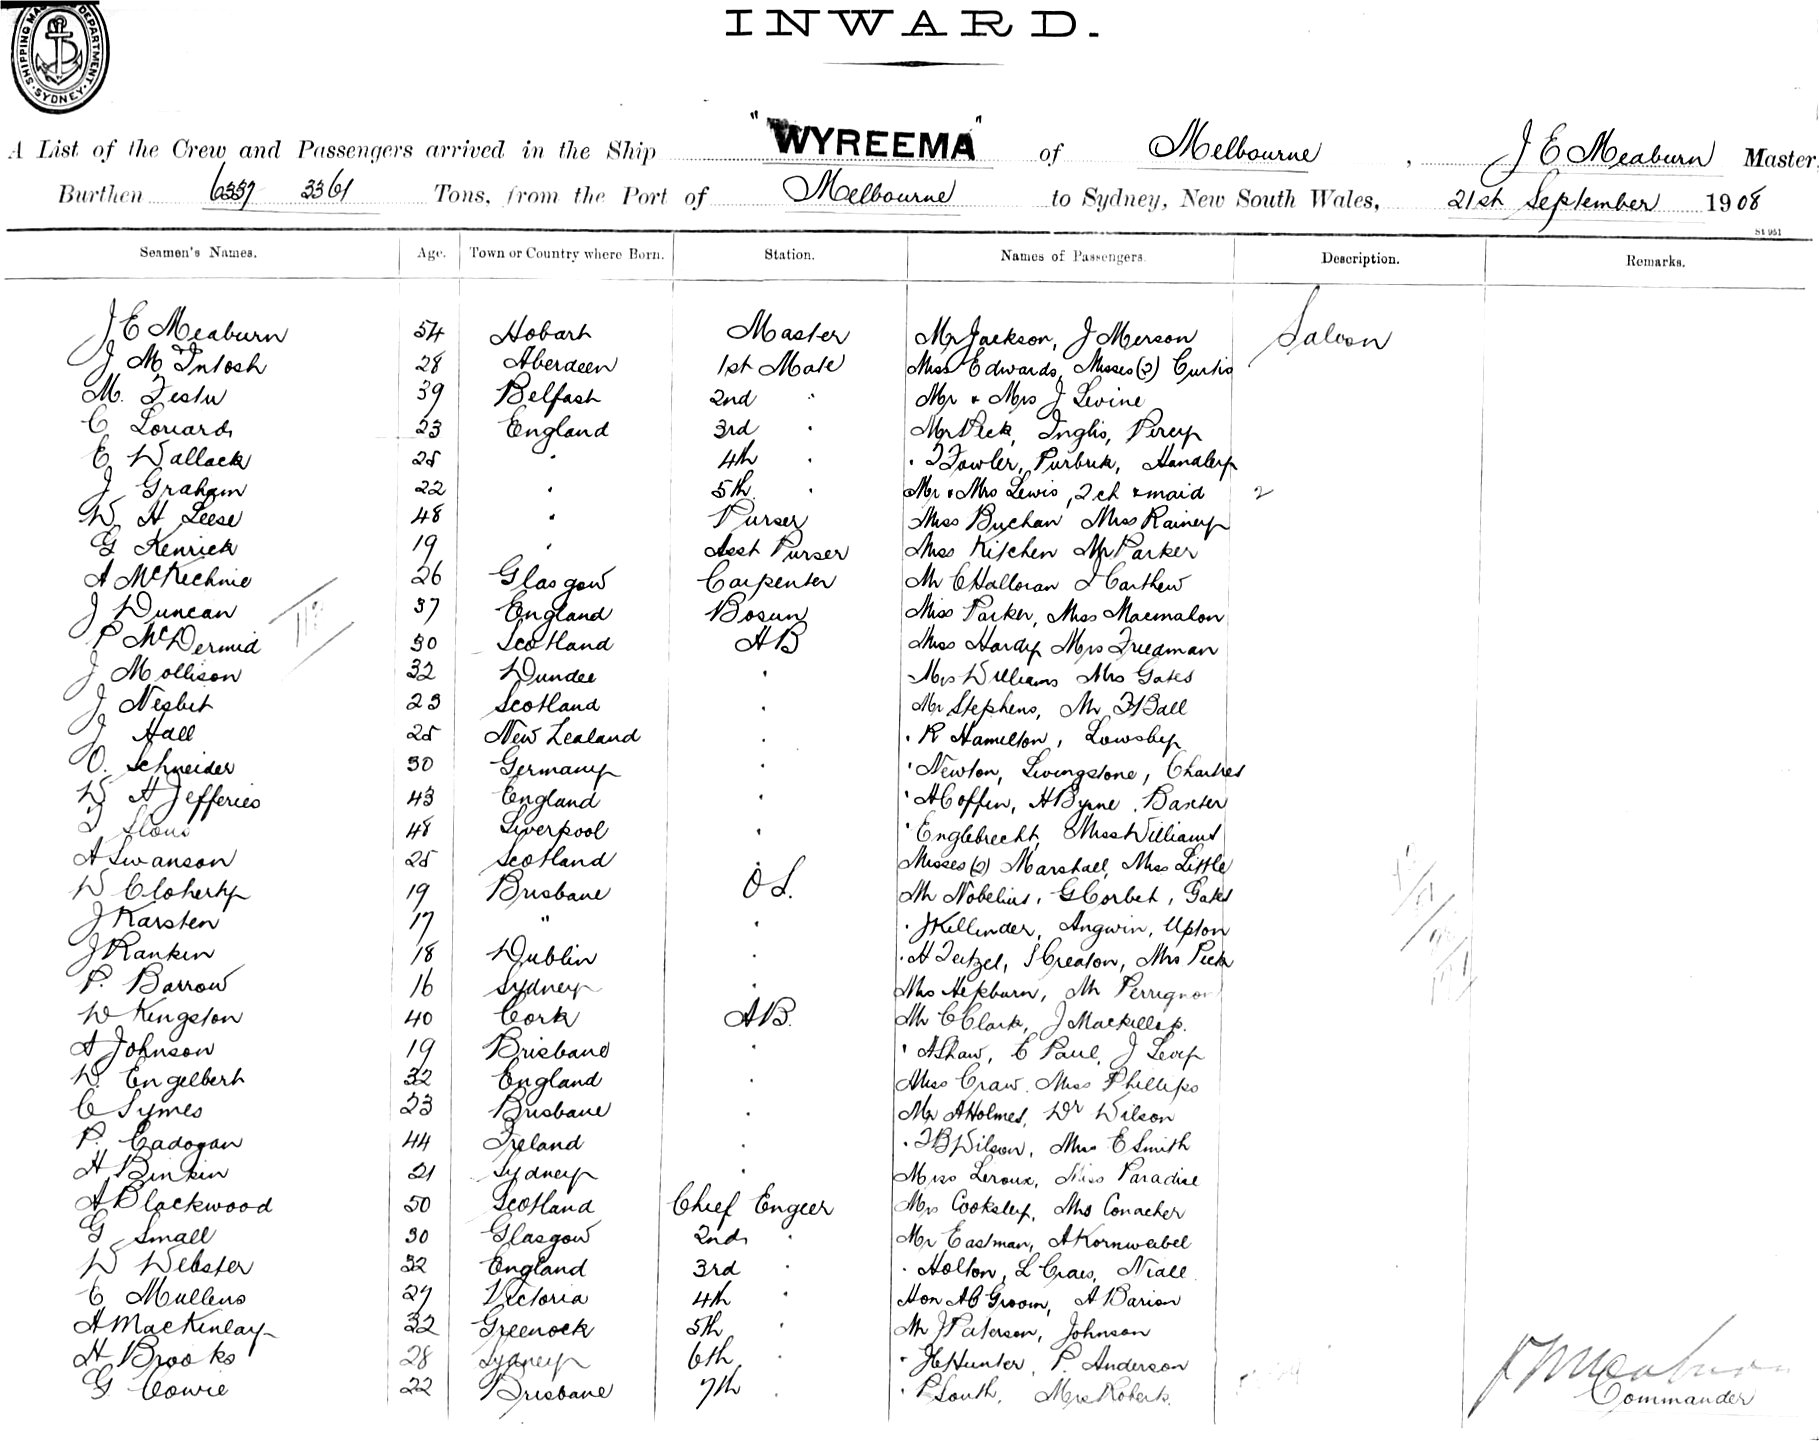 SHIPPING MASTER'S DEPARTMENT. SYDNEY
INWARD.
A List of the Crew and Passengers arrived in the Ship "WYREEMA" of Melbourne, J E Meaburn Master,
Burthen 6339 3361 Tons, from the Port of Melbourne to Sydney, New South Wales, 21st September 1908
St 951
Seamen's Names. Age. Town or Country where Born. Station. Names of Passengers. Description. Remarks.
J E Meaburn 54 Hobart Master Mr Jackson, J Merson Saloon
J McIntosh 28 Aberdeen 1st Mate Miss Edwards, Misses (2) Curtis
M. Testu 39 Belfast 2nd " Mr & Mrs J Levine
C 23 England 3rd " Mr Peck, Inglis, Percy
E Wallack 25 " 4th " " T Fowler, Purbrick, Handley
J Graham 22 " 5th " Mr & Mrs Lewis, 2 ch & maid 2
W H Leese 48 " Purser Miss Buchan Miss Rainey
G Kenrick 19 " Asst Purser Miss Kitchen Mr Parker
A McKechnie 26 Glasgow Carpenter Mr O'Halloran J Carthew
J Duncan 37 England Bosun Miss Parker, Miss Macmahon
P McDermid 30 Scotland AB Miss Hardy Mrs Friedman
J Mollison 32 Dundee " Mrs Williams Mrs Gates
J Nesbit 23 Scotland " Mr Stephens, Mr F Ball
J Hall 25 New Zealand " " R Hamilton, Lowsby
O. Schneider 30 Germany " " Newton, Livingstone, Chartres
W H Jefferies 43 England " " A Coffin, H Byrne, Baxter
48 Liverpool " " Englebrecht, Miss Williams
A Swanson 25 Scotland " Misses (2) Marshall, Miss Little
W Cloherty 19 Brisbane O S. Mr Nobelius, G Corbet, Gates
J Karsten 17 " " " J Killinder, Angwin, Upton
J Rankin 18 Dublin " " H Teitzel, S Creaton, Mrs Peck
P. Barrow 16 Sydney " Mrs Hepburn, Mr Perrignon
W Kingston 40 Cork AB. Mr C Clark, J Mackillop.
A Johnson 19 Brisbane " " A Shaw, E Paul, J Levy
W. Engelbert 32 England " Miss Craw. Miss Phillips
C Symes 23 Brisbane " Mr A Holmes, Dr Wilson
P. Cadogan 44 Ireland " " F B Wilson, Mrs E Smith
H Binkin 21 Sydney " Miss Leroux, Miss Paradise
A Blackwood 50 Scotland Chief Engeer Mrs Cooksley, Mrs Conacher
G Small 30 Glasgow 2nd " Mr Eastman, A Kornweibel
W Webster 32 England 3rd " " Holton, L Craes, Niall
C Mullens 27 Victoria 4th " Hon A C Groom, A Barion
A MacKinlay 32 Greenock 5th " Mr J Paterson, Johnson
H Brooks 28 Sydney 6th " " J C Hunter, P. Anderson
G Cowie 22 Brisbane 7th " " P South, Mrs Roberts.
J E Meaburn
Commander